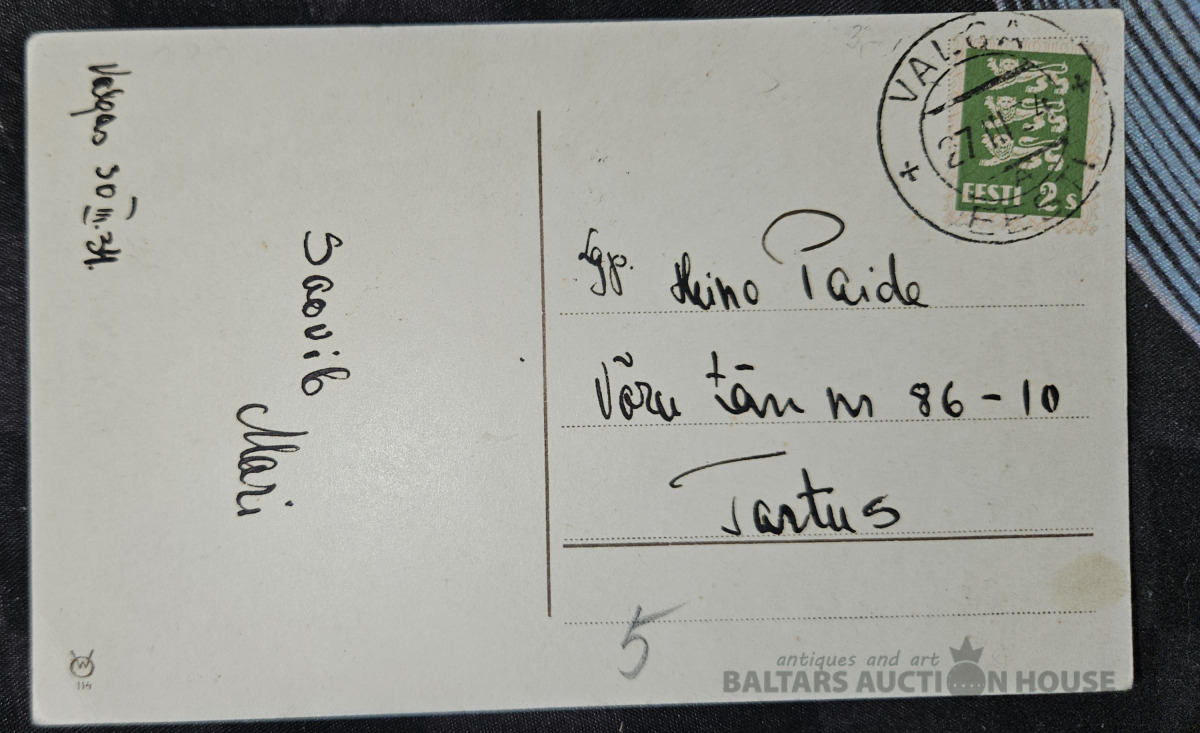 Valgas 30 III. 34.
Soovib
Mari
VALGA
27 III
EESTI
EESTI 2 s
Lgp. Heino Paide
Võru tän nr 86-10
Tartus
5
114
antiques and art
BALTARS AUCTION HOUSE